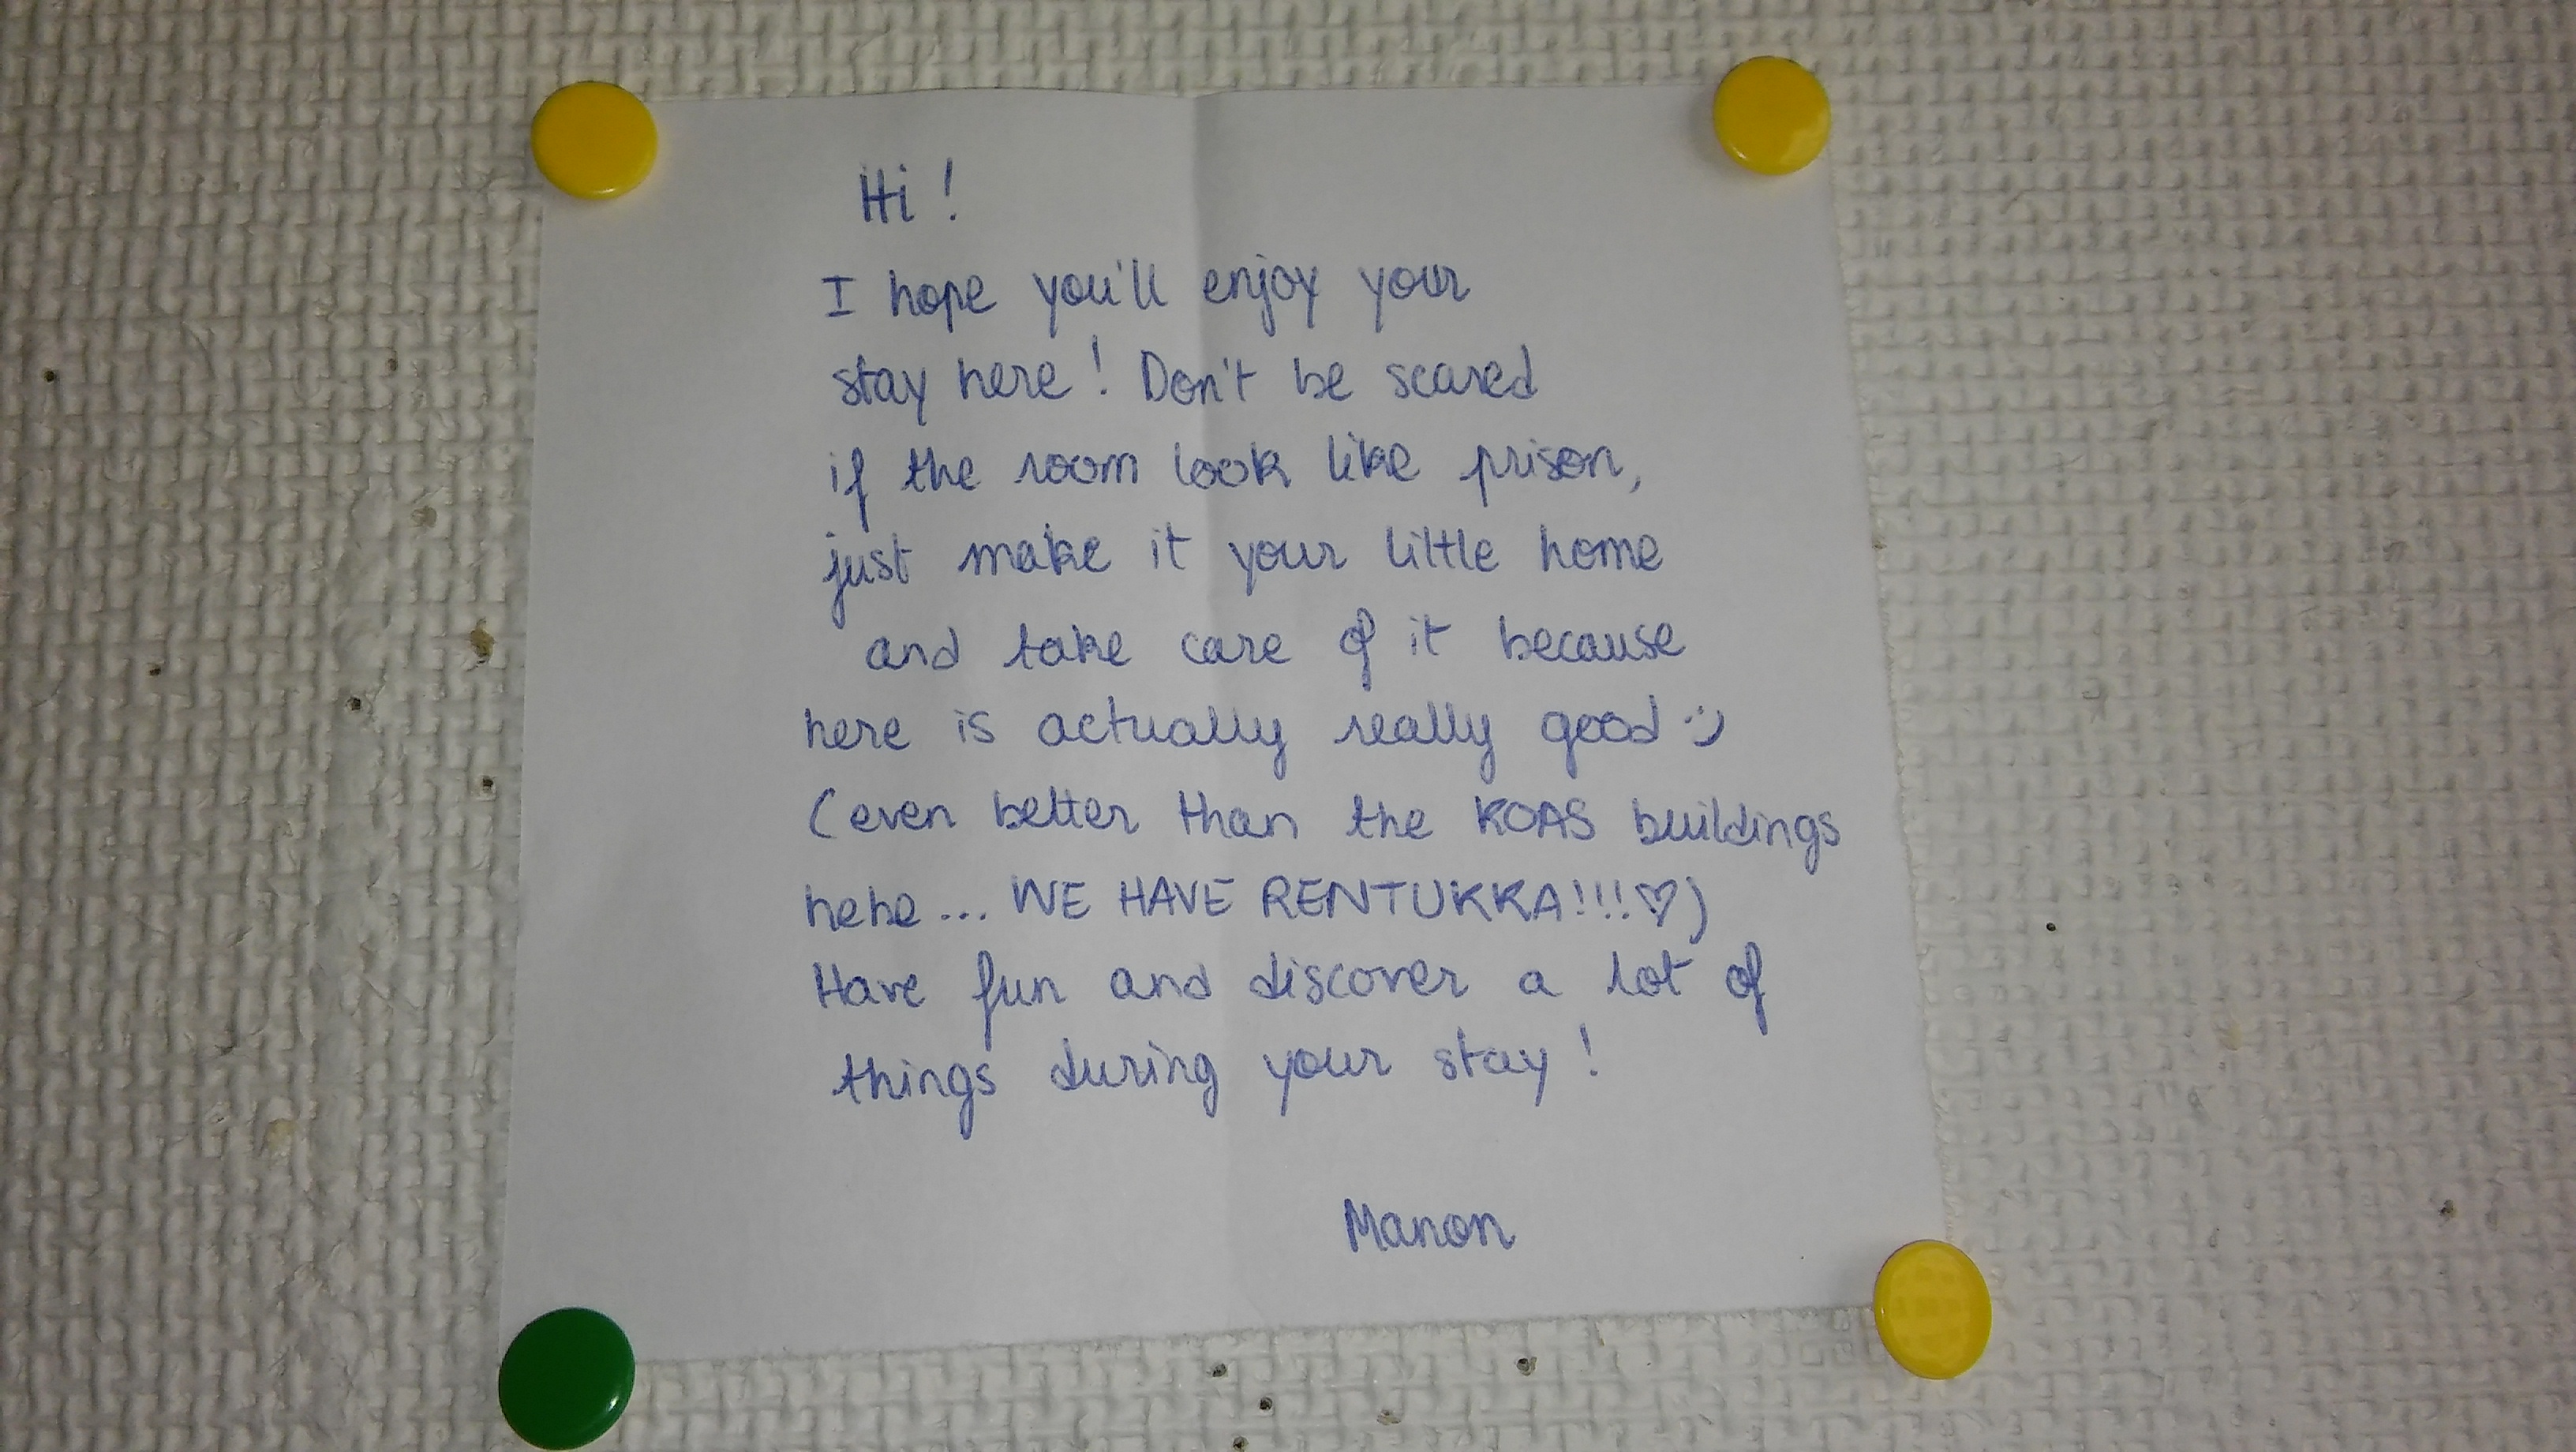 Hi !
I hope you'll enjoy your
stay here ! Don't be scared
if the room look like prison,
just make it your little home
and take care of it because
here is actually really good :)
(even better than the KOAS buildings
hehe... WE HAVE RENTUKKA!!!♡)
Have fun and discover a lot of
things during your stay !
Manon